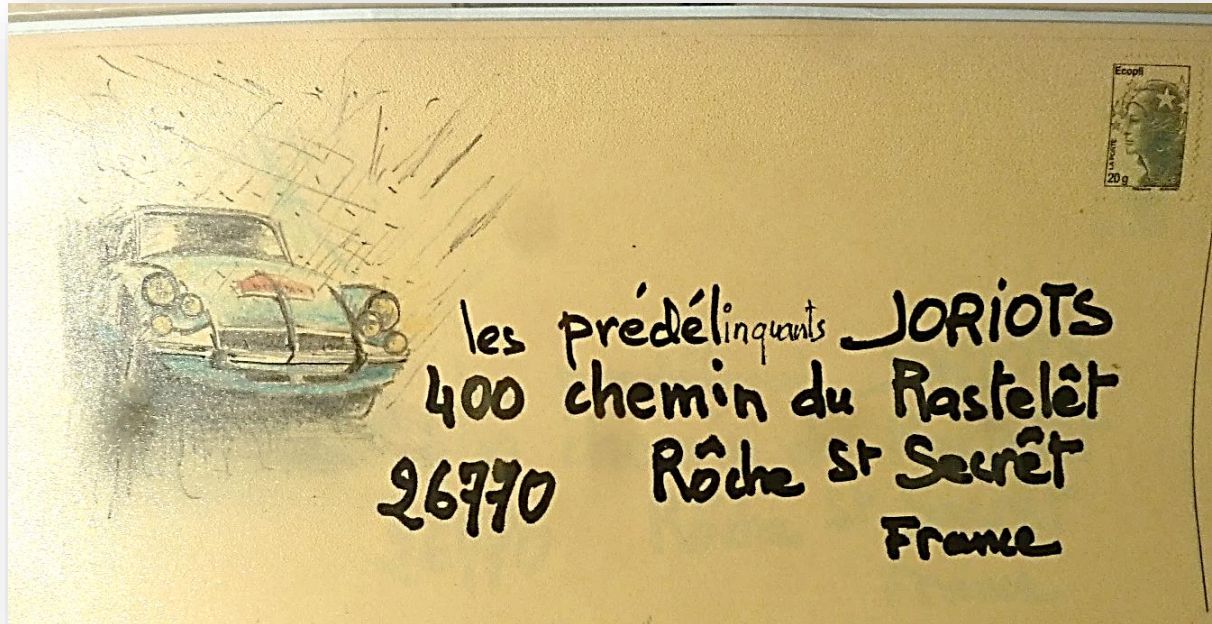 Ecopli
LA POSTE
20g
les prédélinquants JORIOTS
400 chemin du Rastelêt
26770 Rôche St Secrêt
France